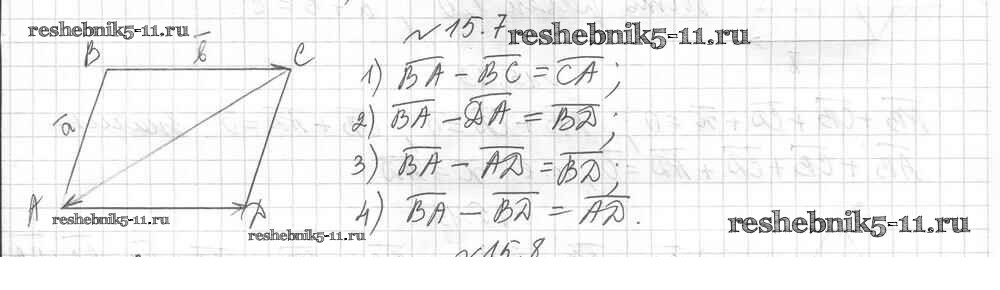 reshebnik5-11.ru
№ 15.7 reshebnik5-11.ru
B b̅ C
a̅
A D
1) B̅A̅ − B̅C̅ = C̅A̅;
2) B̅A̅ − D̅A̅ = B̅D̅;
3) B̅A̅ − A̅D̅ = B̅D̅;
4) B̅A̅ − B̅D̅ = A̅D̅.
reshebnik5-11.ru
reshebnik5-11.ru
reshebnik5-11.ru
№15.8